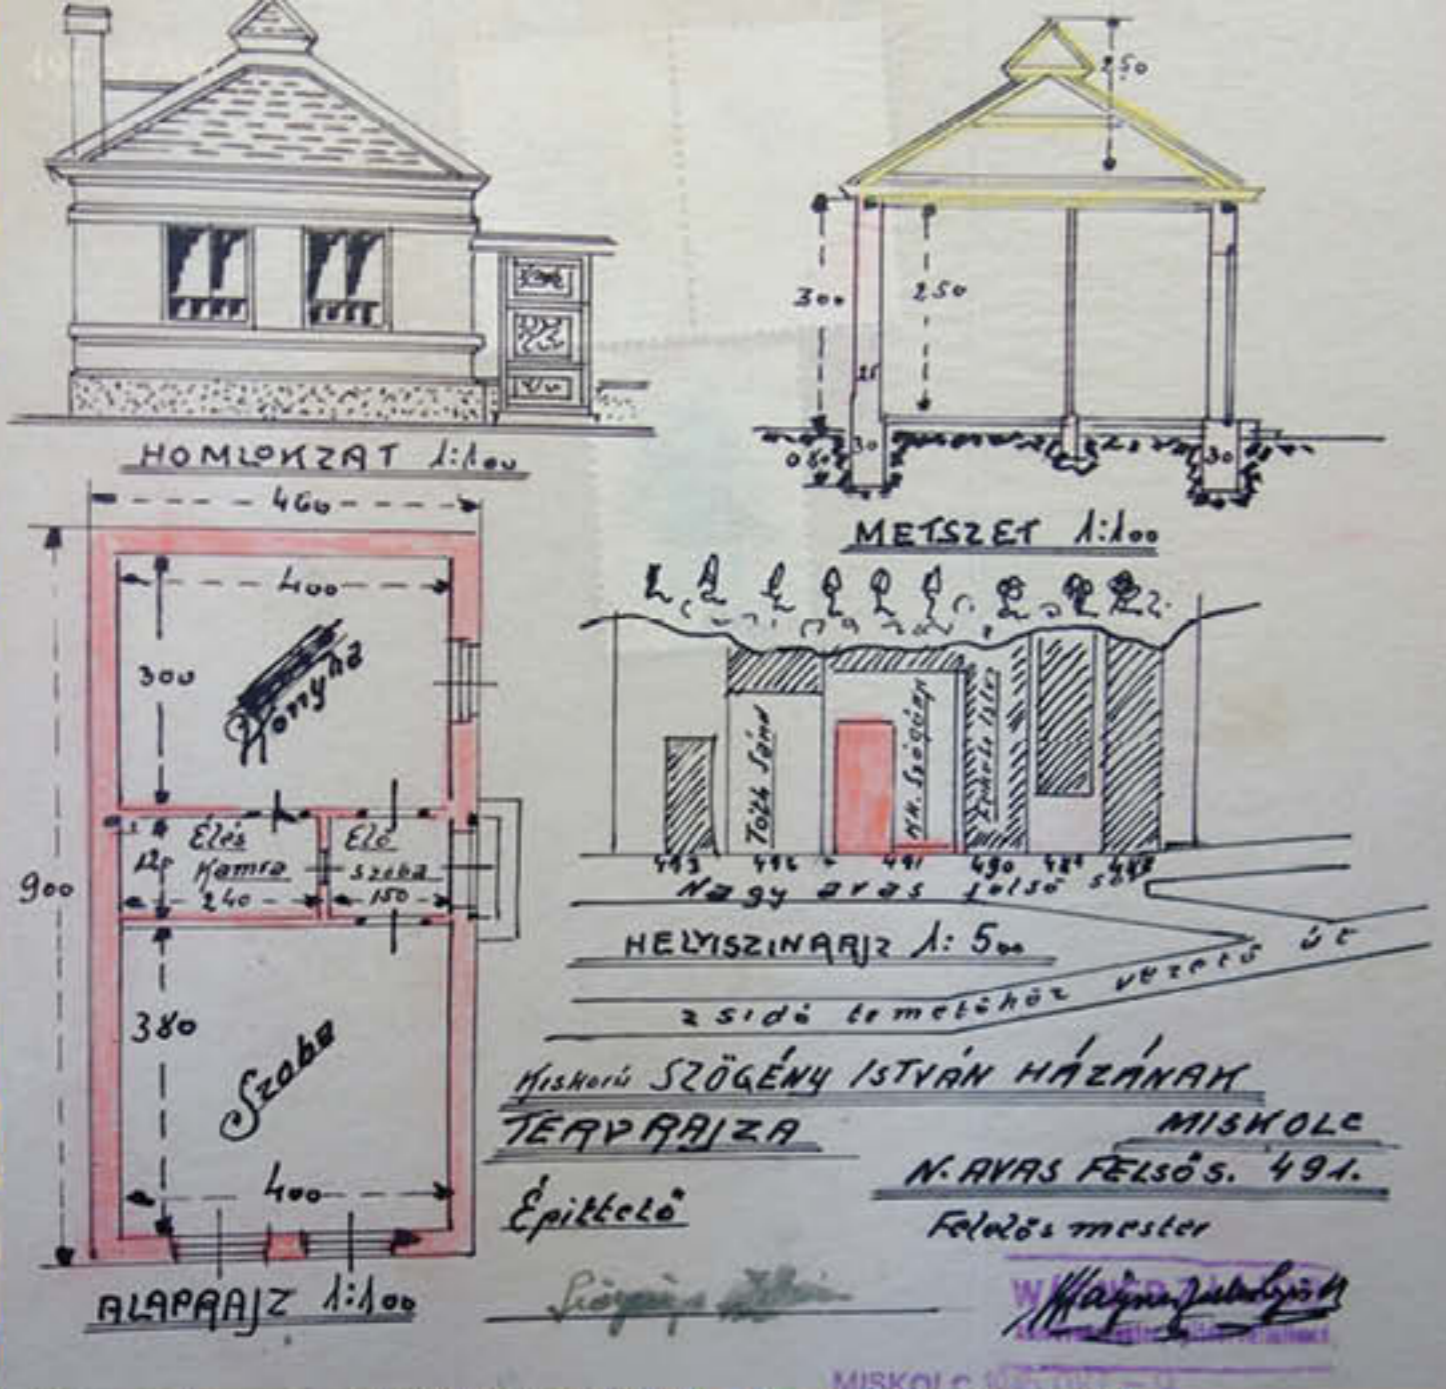 250
300
250
25
30
30
HOMLOKZAT 1:100
METSZET 1:100
460
400
300
Konyha
900
Élés
Kamra
120
240
Elő
szoba
150
380
Szoba
400
ALAPRAJZ 1:100
Tóth Sánd
Kk. Szögény
493 492 491 490 489 488
Nagy avas felső sor
HELYISZINRAJZ 1:500
zsidó temetőhöz vezető út
Kiskorú SZÖGÉNY ISTVÁN HÁZÁNAK
TERVRAJZA
MISKOLC
N. AVAS FELSŐS. 491.
Építtető
Felelős mester
MISKOLC